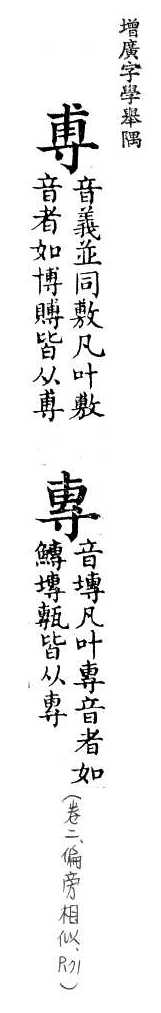 增廣字學舉隅
尃
音義並同敷凡叶敷
音者如博賻皆从尃
專
音塼凡叶專音者如
鱄塼甎皆从專
(卷二、偏旁相似、P.71)